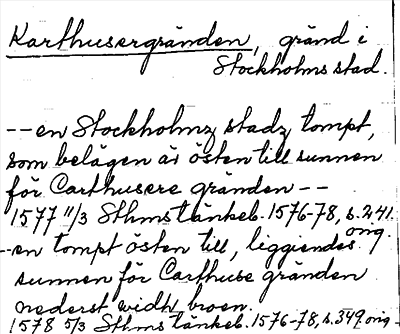 Karthusergränden, gränd i
Stockholms stad.
-- en Stockholmz stadz tompt,
som belägen är östen till sunnen
för Carthusere gränden --
1577 11/3 Sthms tänkeb. 1576-78, s. 241.
orig.
-- en tompt östen till, liggiendes
sunnen för Carthuse gränden
nederst widh broen.
1578 5/3 Sthms tänkeb. 1576-78, s. 349 orig.-